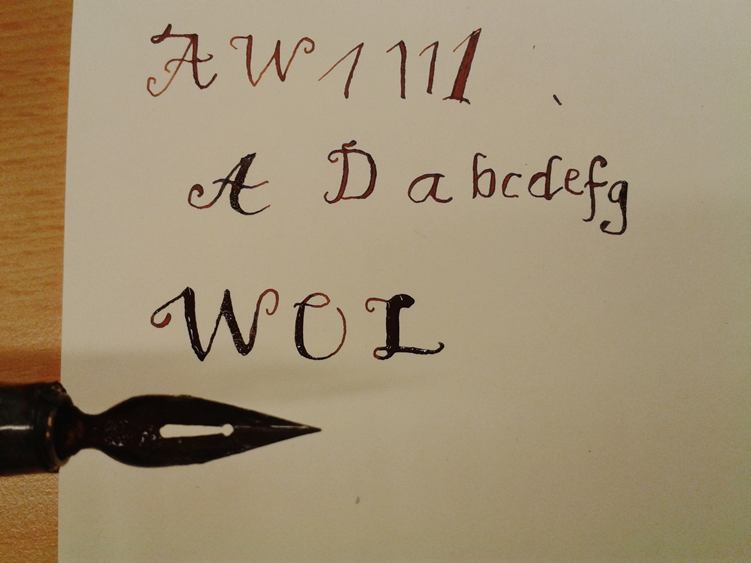 A W 1 1 1 1
A D a b c d e f g
W O L